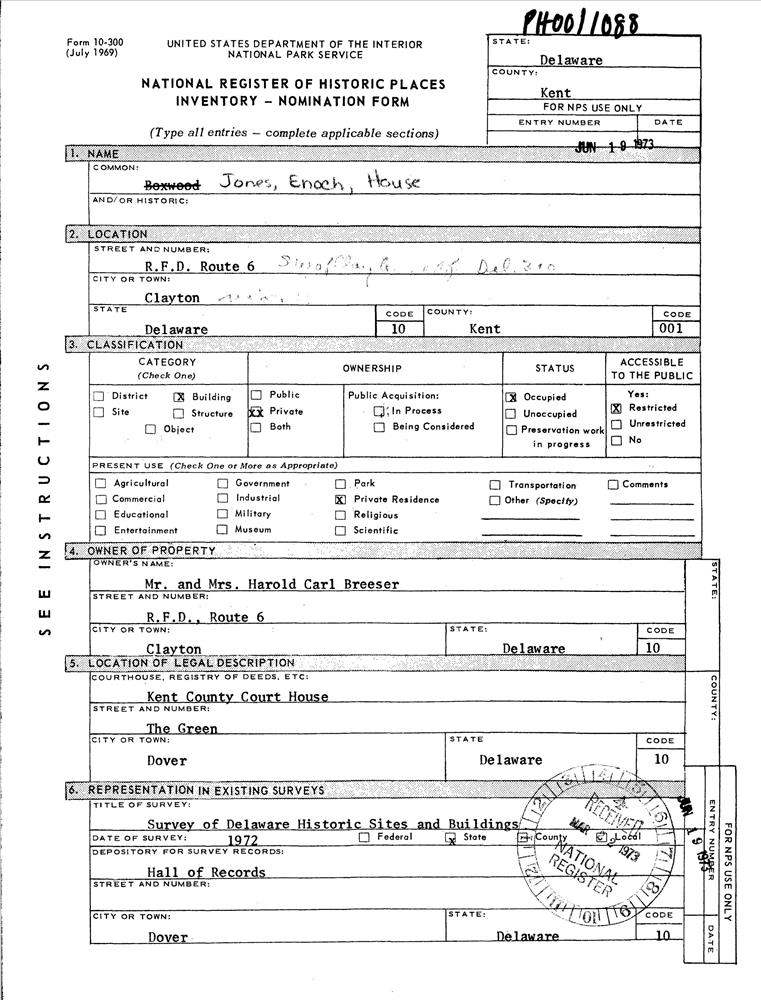 PH0011088
Form 10-300
(July 1969)
UNITED STATES DEPARTMENT OF THE INTERIOR
NATIONAL PARK SERVICE
NATIONAL REGISTER OF HISTORIC PLACES
INVENTORY – NOMINATION FORM
(Type all entries – complete applicable sections)
STATE:
Delaware
COUNTY:
Kent
FOR NPS USE ONLY
ENTRY NUMBER DATE
JUN 19 1973
1. NAME
COMMON:
Boxwood Jones, Enoch, House
AND/OR HISTORIC:
2. LOCATION
STREET AND NUMBER:
R.F.D. Route 6
CITY OR TOWN:
Clayton
STATE CODE COUNTY: CODE
Delaware 10 Kent 001
3. CLASSIFICATION
CATEGORY
(Check One)
OWNERSHIP
STATUS
ACCESSIBLE
TO THE PUBLIC
District X Building
Site Structure
Object
Public
XX Private
Both
Public Acquisition:
In Process
Being Considered
X Occupied
Unoccupied
Preservation work
in progress
Yes:
X Restricted
Unrestricted
No
PRESENT USE (Check One or More as Appropriate)
Agricultural Government Park Transportation Comments
Commercial Industrial X Private Residence Other (Specify)
Educational Military Religious
Entertainment Museum Scientific
4. OWNER OF PROPERTY
OWNER'S NAME:
Mr. and Mrs. Harold Carl Breeser
STREET AND NUMBER:
R.F.D., Route 6
CITY OR TOWN: STATE: CODE
Clayton Delaware 10
5. LOCATION OF LEGAL DESCRIPTION
COURTHOUSE, REGISTRY OF DEEDS, ETC:
Kent County Court House
STREET AND NUMBER:
The Green
CITY OR TOWN: STATE CODE
Dover Delaware 10
6. REPRESENTATION IN EXISTING SURVEYS
TITLE OF SURVEY:
Survey of Delaware Historic Sites and Buildings
DATE OF SURVEY: 1972 Federal X State County Local
DEPOSITORY FOR SURVEY RECORDS:
Hall of Records
STREET AND NUMBER:
CITY OR TOWN: STATE: CODE
Dover Delaware 10
RECEIVED
MAR 2 1973
NATIONAL
REGISTER
SEE INSTRUCTIONS
STATE:
COUNTY:
ENTRY NUMBER
DATE
FOR NPS USE ONLY
JUN 19 1973